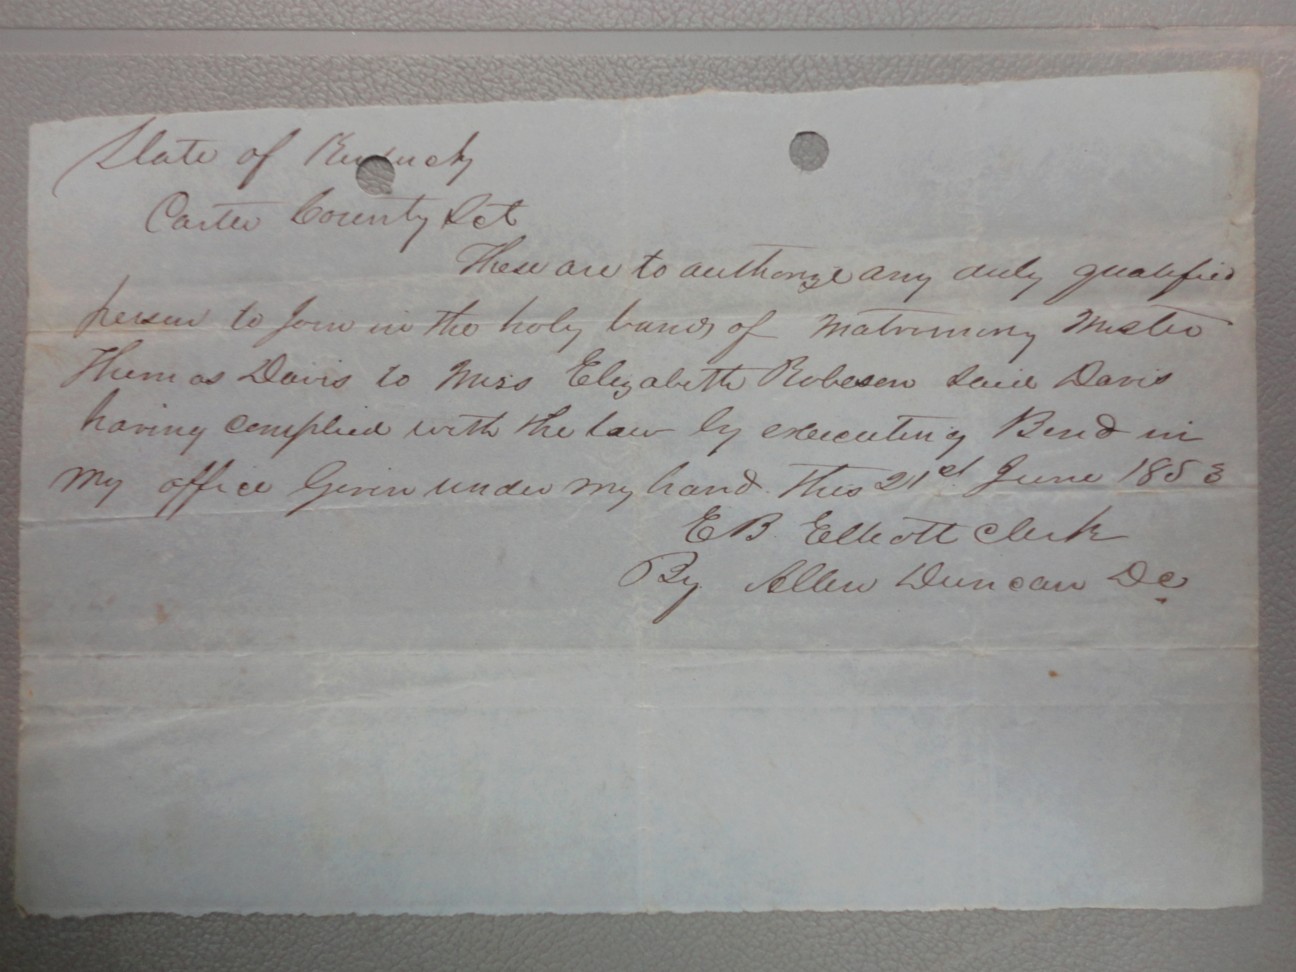 State of Kentucky
Carter County Sct
These are to authorize any duly qualified
person to Join in the holy bands of Matrimony Mister
Thomas Davis to Miss Elizabeth Robeson said Davis
having complied with the law by executing Bond in
my office Given under my hand this 21st June 1853
E B. Elliott Clerk
By Allen Duncan Dc